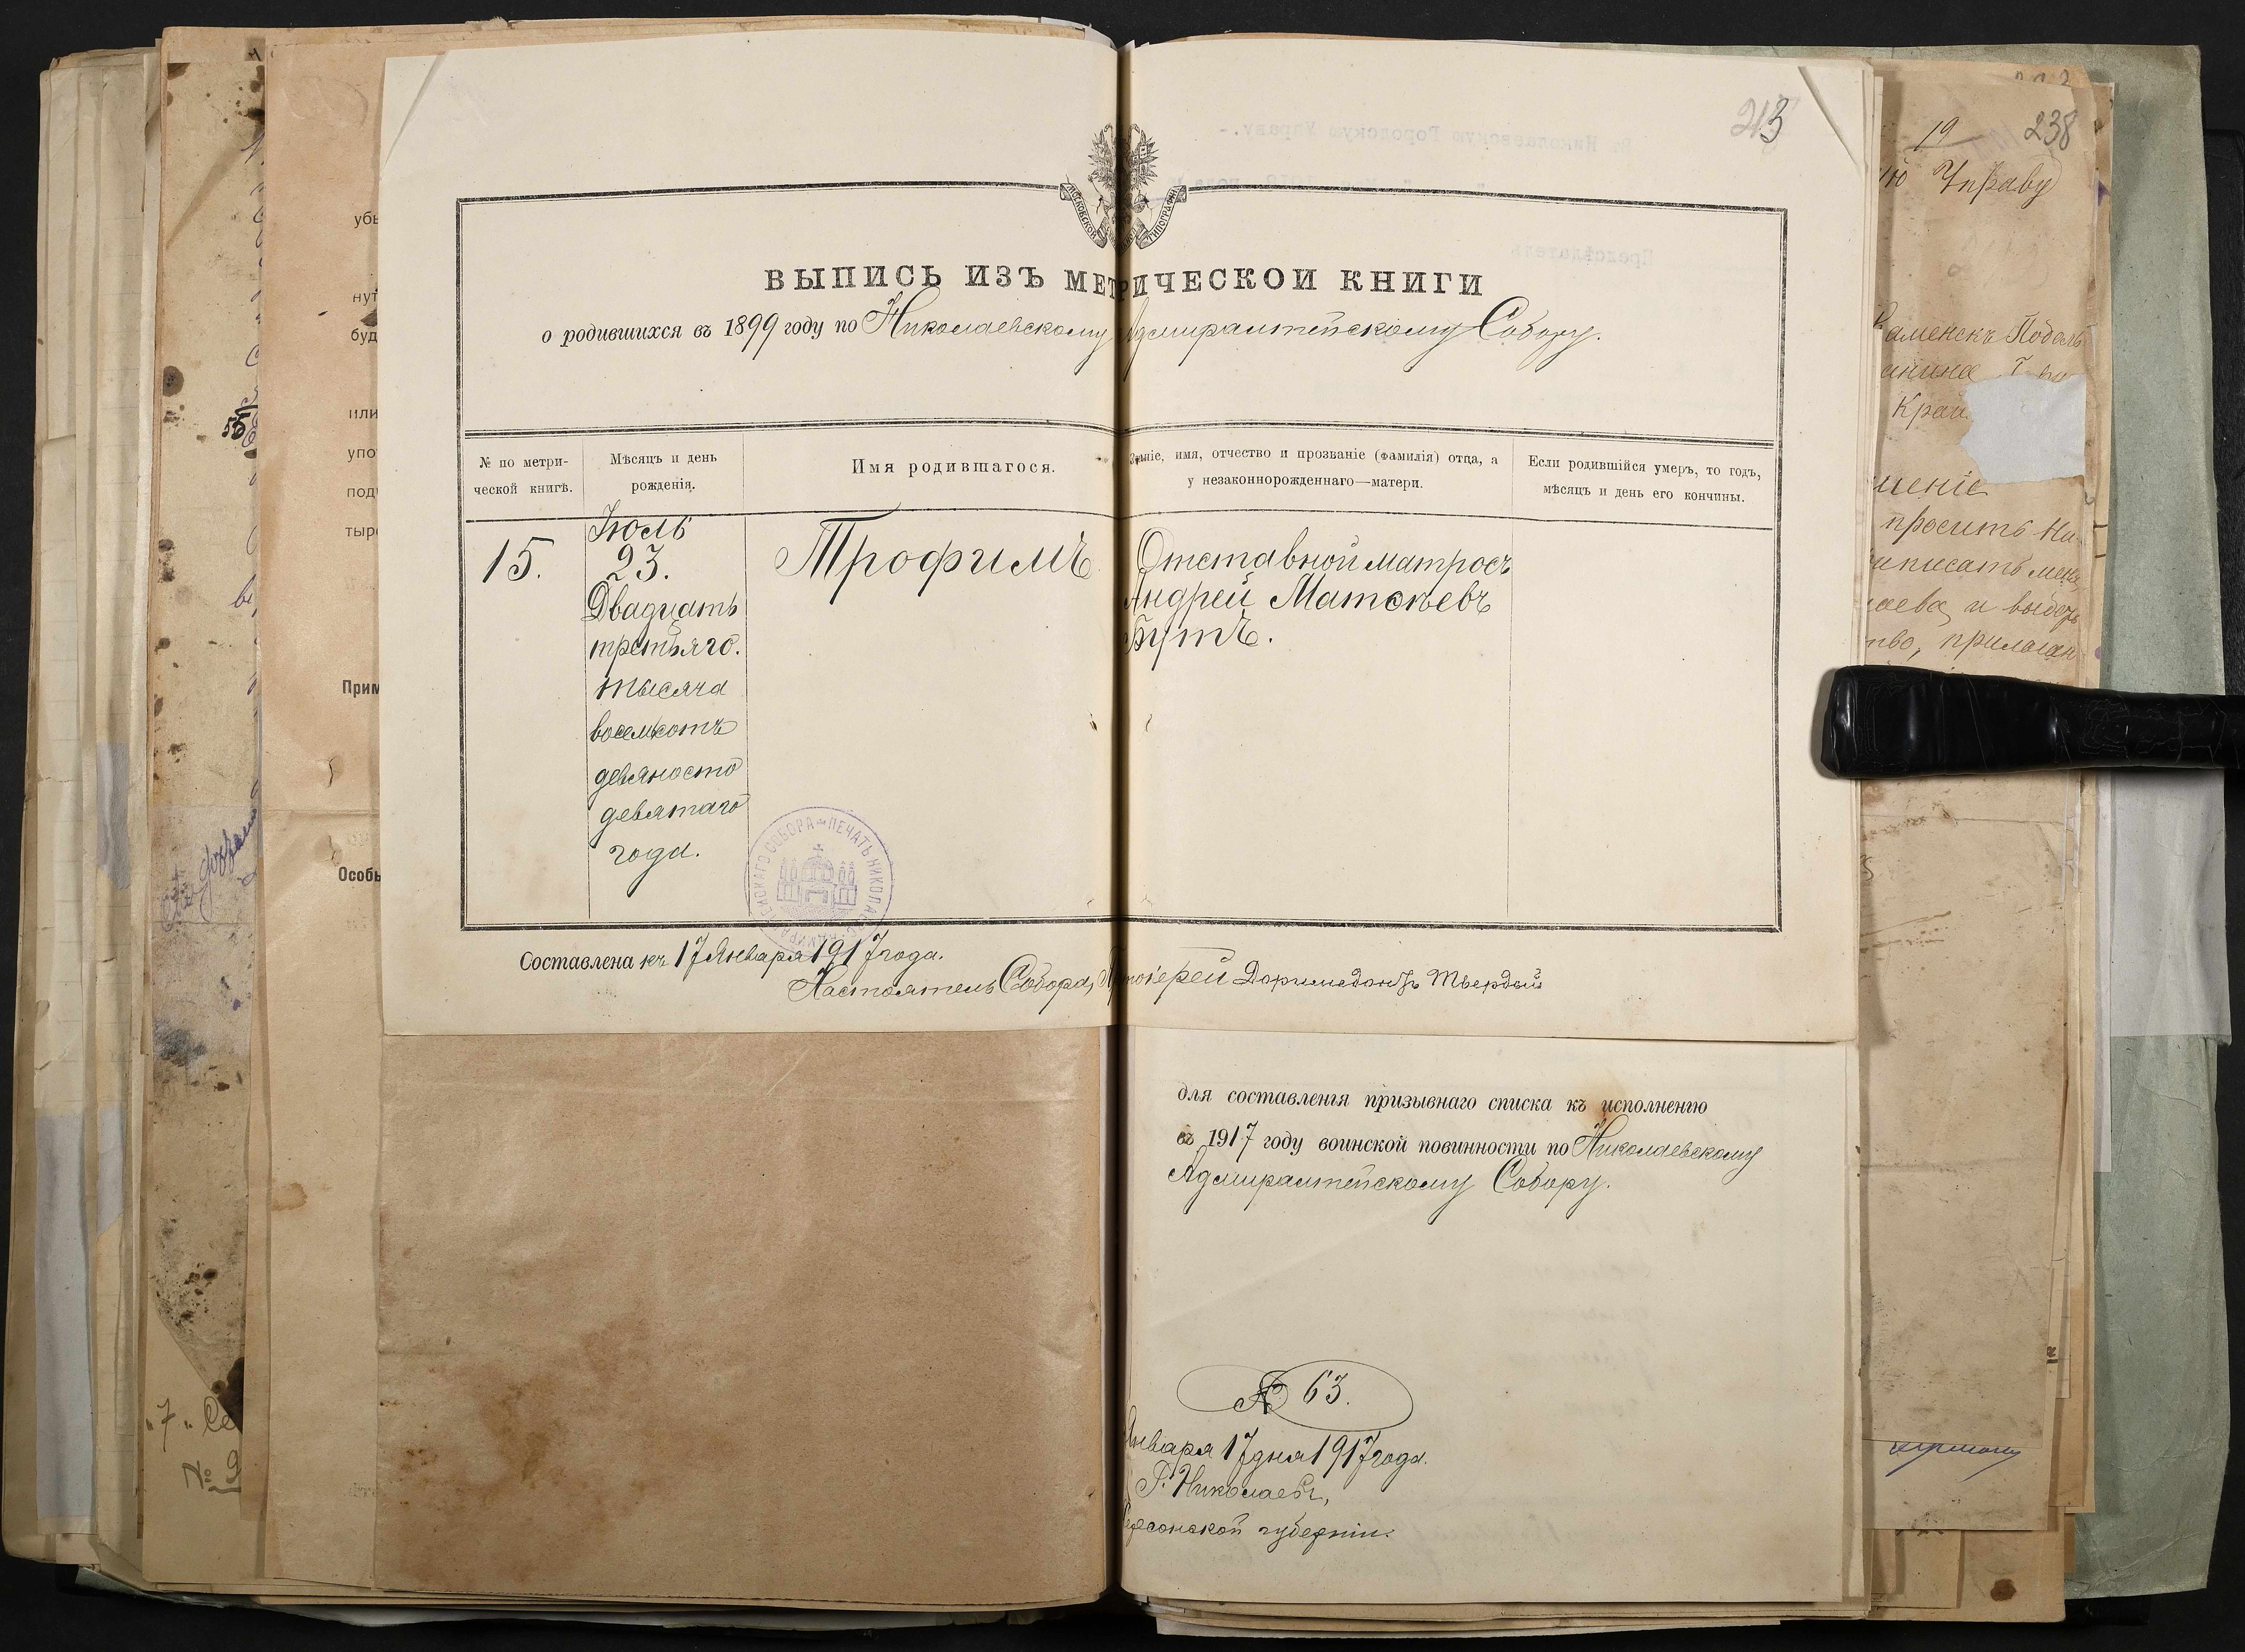 213
МОСКОВСКОЙ ТИПОГРАФІИ
ВЫПИСЬ ИЗЪ МЕТРИЧЕСКОЙ КНИГИ
о родившихся въ 1899 году по Николаевскому Адмиралтейскому Собору.
№ по метри-
ческой книгѣ.
Мѣсяцъ и день
рожденія.
Имя родившагося.
Званіе, имя, отчество и прозваніе (фамилія) отца, а
у незаконнорожденнаго—матери.
Если родившійся умеръ, то годъ,
мѣсяцъ и день его кончины.
15.
Іюль
23.
Двадцать
третьяго.
тысяча
восемьсотъ
девяносто
девятаго
года.
Трофимъ
Отставной матросъ
Андрей Матѳѣевъ
Бутъ.
СОБОРА ПЕЧАТЬ НИКОЛАЕВ
Составлена къ 17 Января 1917 года.
Настоятель Собора, Протоіерей Доримедонтъ Твердый
для составленія призывнаго списка къ исполненію
въ 1917 году воинской повинности по Николаевскому
Адмиралтейскому Собору.
№ 63.
Января 17 дня 1917 года.
Г. Николаевъ,
Херсонской губерніи.
убы
нут
буд
или
упо
подп
тыр
Прим
Особы
"7" Се
№ 9
19
238
ую Управу
Каменскъ Подоль
анина
Край
шеніе
просить Ни
иписать меня
лаева, и выдать
тво, прилаган